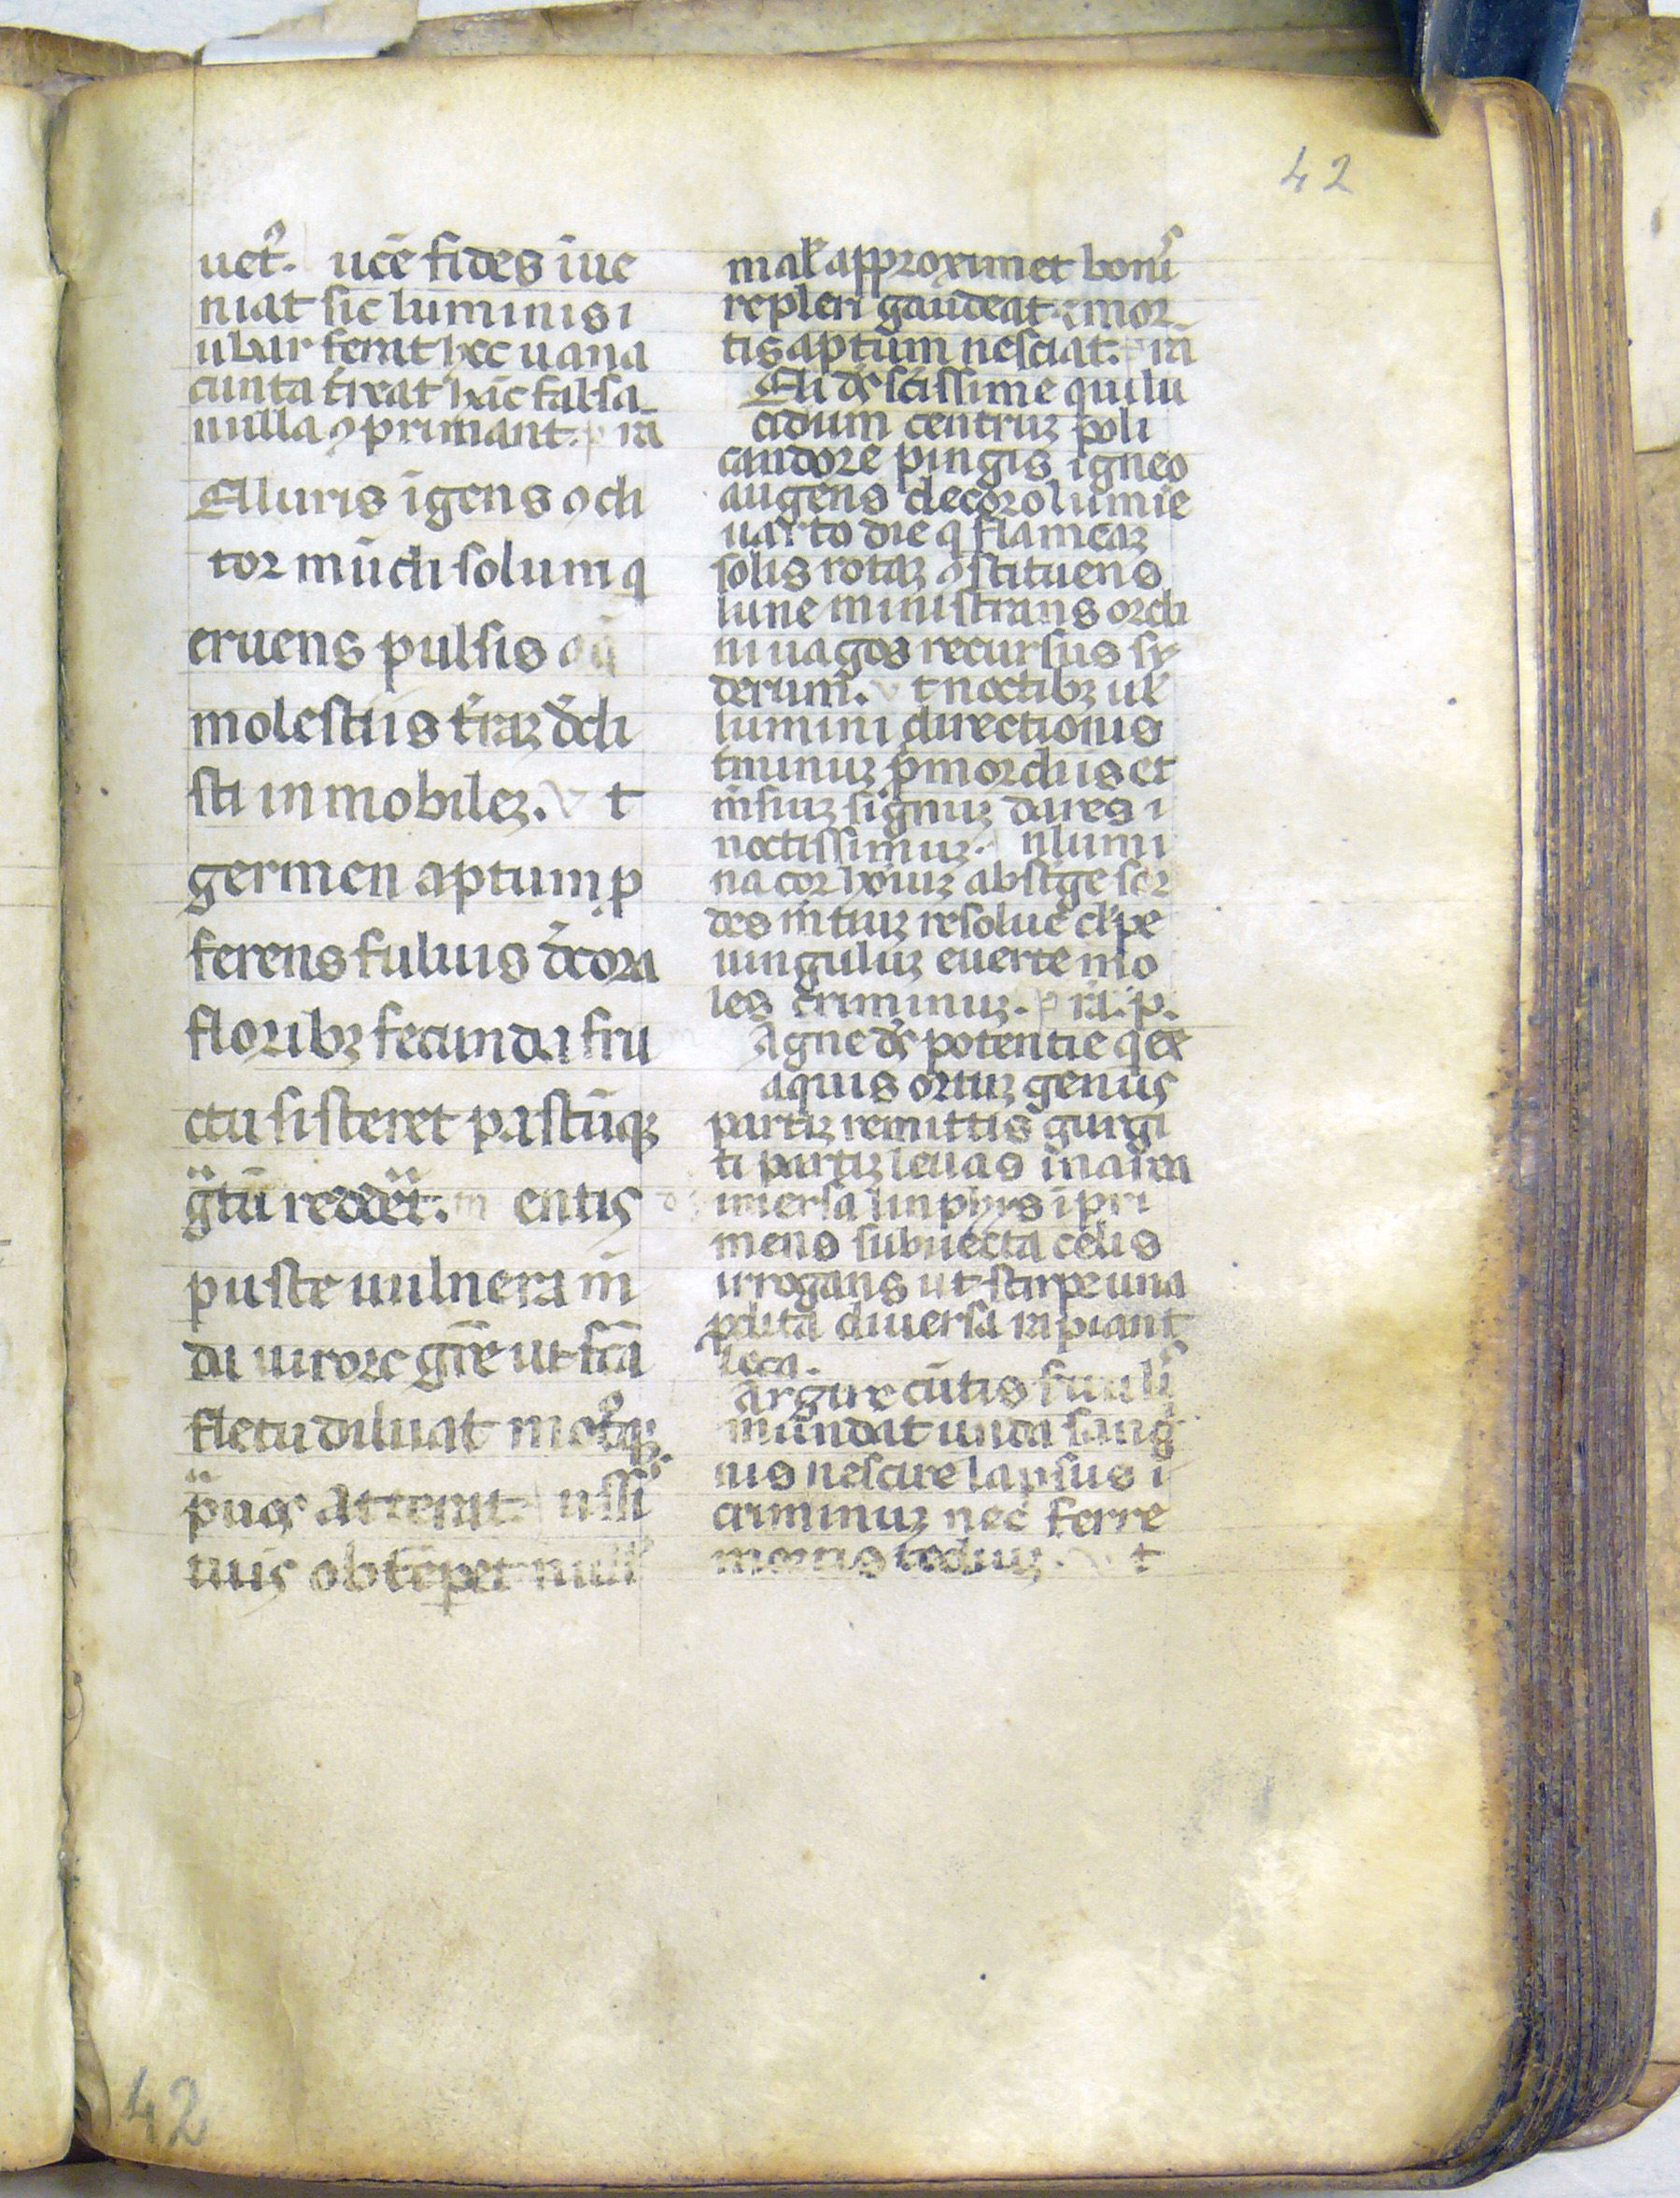 42
uet᷑. ucē fides īue
niat sic luminis i
ubar ferat hec uana
cuncta t̄reat hāc falsa
nulla ꝯprimant. p ra
Elluris īgens ꝯdi
tor mūdi solum q
eruens pulsis aq̄
molestiis t̄raꝫ ded̄i
sti inmobileꝫ. v t
germen aptum, p
ferens fuluis d̄cora
floribꝫ fecunda fru
ctu sisteret pastūqꝫ
g̃tū redder̄t. m entis
puste uulnera in
da uirore gr̄e ut fc̄a
fletu diluat mot᷒qꝫ
puos atterat. ussis
tuis obtēpet nullis
mal̓ approximet bonis
repleri gaudeat ⁊ mor
tis aptum nesciat. p ra
Eli ds̄ sc̄issime qui lu
cidum centruꝫ poli
candore pingis igneo
augens decoro lumīe
uarto die q flameaꝫ
solis rotaꝫ ꝯstituens
lune ministrans ordi
ni uagos recursus sy
derum. v t noctibꝫ uel̓
lumini directionis
t̄minuꝫ p̄mordiis et
insiuꝫ signuꝫ dares i
noctissimuꝫ. nlumi
na cor hoīuꝫ abst̄ge sor
des mētiuꝫ resolue cl̓pe
uingulūꝫ euerte mo
les criminuꝫ. p ra. p.
Agne ds̄ potentie q ex
aquis ortuꝫ genus
partīꝫ remittis gurgi
ti partīꝫ leuas in aera
imersa linphys īpri
mens subuecta celis
irrogans ut stirpe una
ꝓdita diuersa rapiant
loca.
Argire cūtis suulis
mūndat unda sangi
nis nescire lapsus i
criminuꝫ nec ferre
mortis tediuꝫ. v t
42